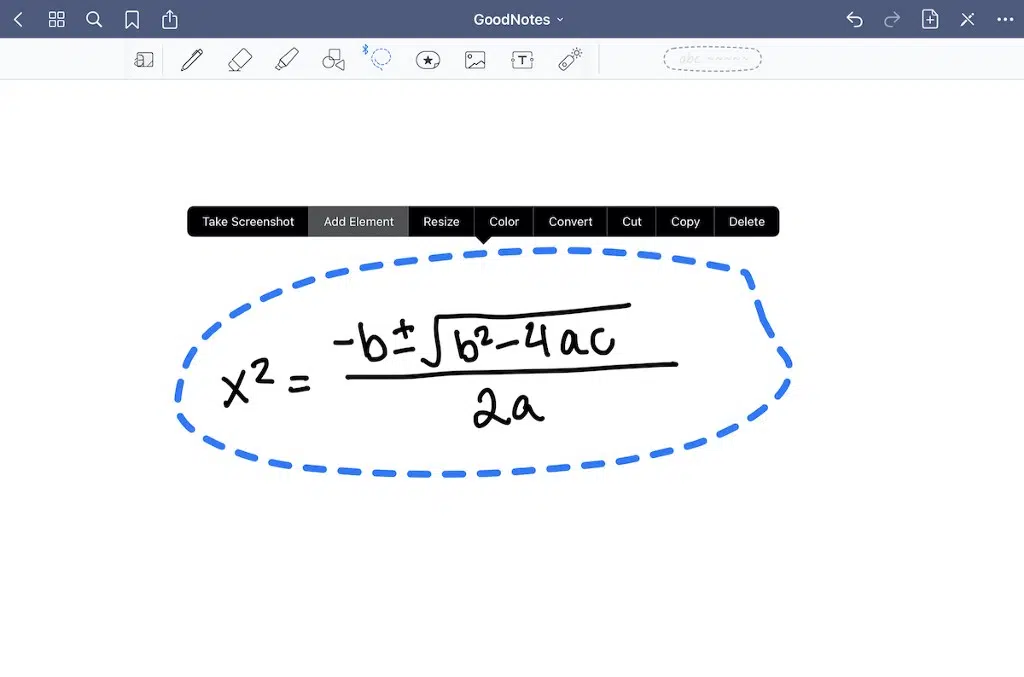 GoodNotes
abc
T
Take Screenshot Add Element Resize Color Convert Cut Copy Delete
x² = (-b ± √(b²-4ac)) / 2a